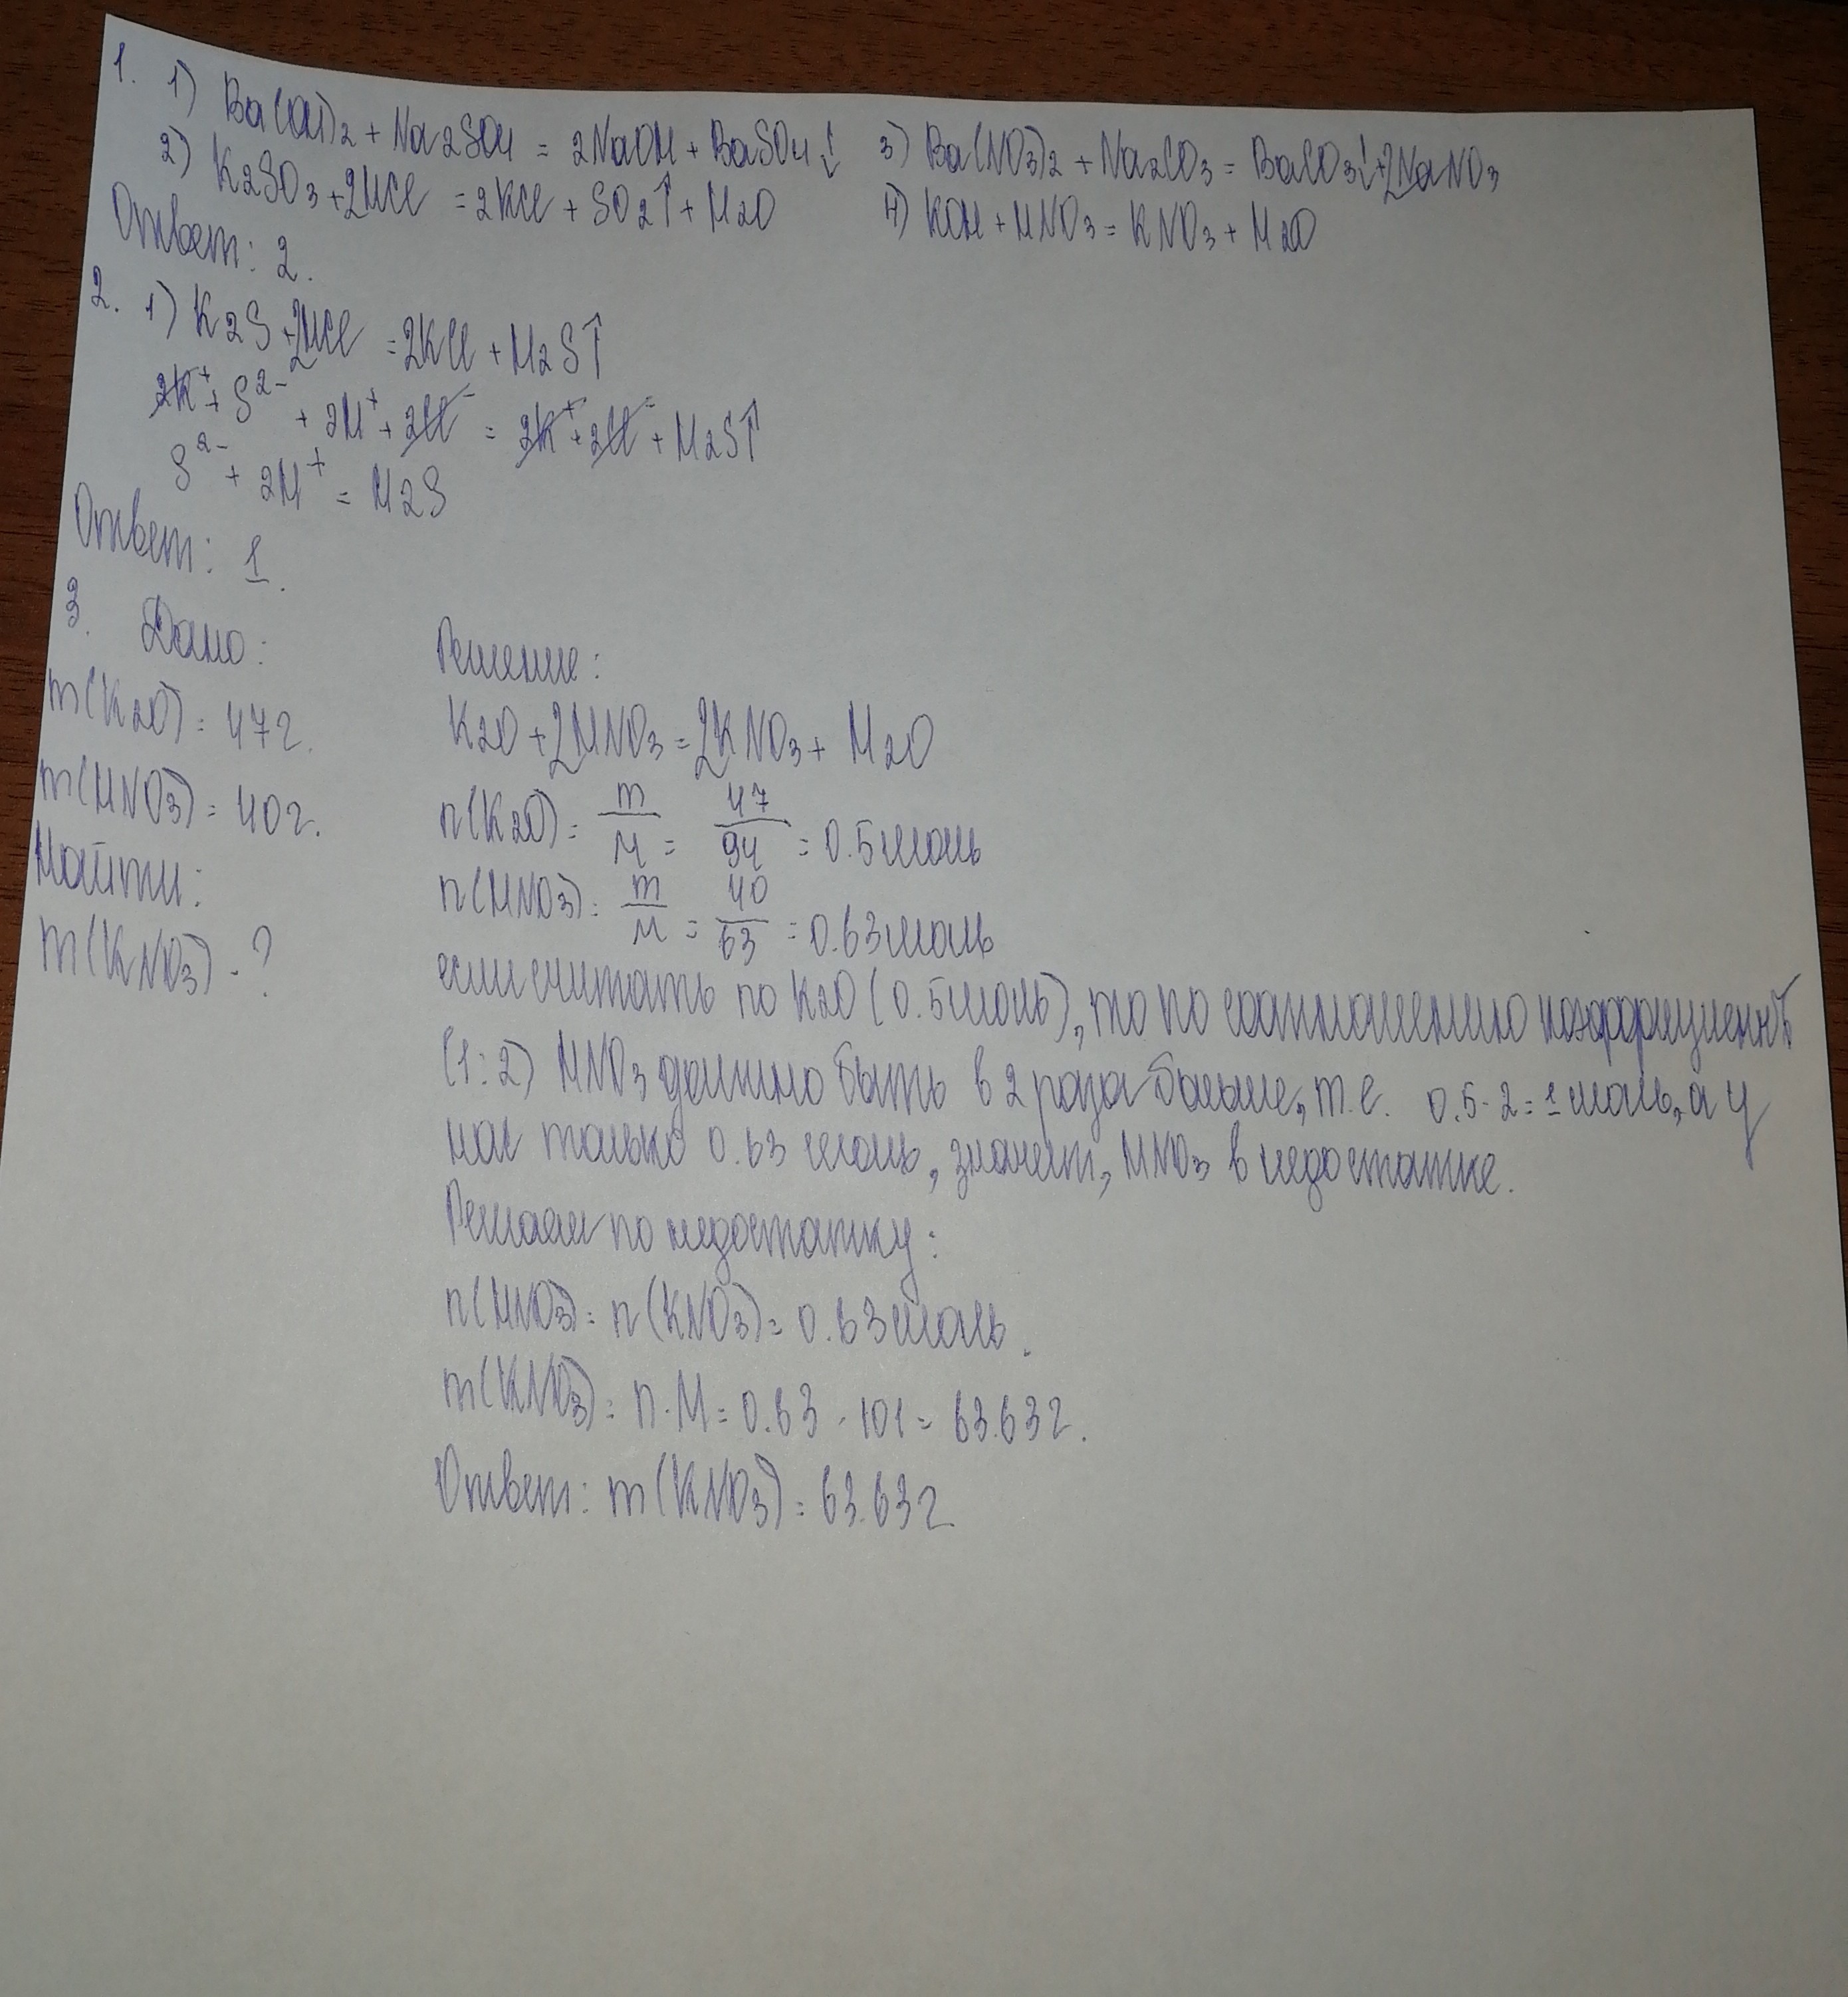 1. 1) Ba(OH)2 + Na2SO4 = 2NaOH + BaSO4↓ 3) Ba(NO3)2 + Na2CO3 = BaCO3↓+2NaNO3
2) K2SO3+2HCl = 2KCl + SO2↑+ H2O 4) KOH + HNO3 = KNO3 + H2O
Ответ: 2.
2. 1) K2S+2HCl = 2KCl + H2S↑
2K⁺ + S²⁻ + 2H⁺ + 2Cl⁻ = 2K⁺ + 2Cl⁻ + H2S↑
S²⁻ + 2H⁺ = H2S
Ответ: 1.
3. Дано: Решение:
m(K2O) = 47г. K2O + 2HNO3 = 2KNO3 + H2O
m(HNO3) = 40г. n(K2O) = m/M = 47/94 = 0.5моль
Найти: n(HNO3) = m/M = 40/63 = 0.63моль
m(KNO3) - ?
если считать по K2O (0.5моль), то по соотношению коэффициент
(1:2) HNO3 должно быть в 2 раза больше, т.е. 0.5·2=1моль, а у
нас только 0.63 моль, значит, HNO3 в недостатке.
Решаем по недостатку:
n(HNO3) = n(KNO3) = 0.63моль.
m(KNO3) = n·M = 0.63 · 101 = 63.63г.
Ответ: m(KNO3) = 63.63г.